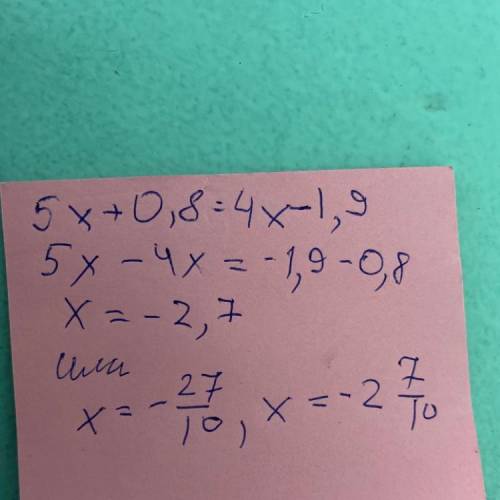 5x+0,8=4x-1,9
5x-4x=-1,9-0,8
x=-2,7
или
x=-27/10, x=-2 7/10